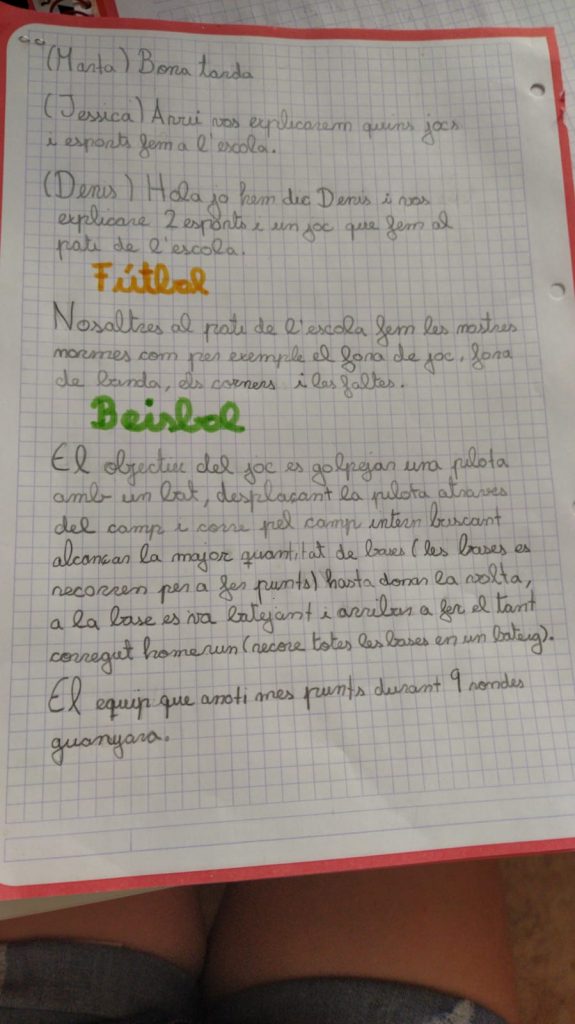 (Marta) Bona tarda
(Jessica) Avui vos explicarem quins jocs
i esports fem a l'escola.
(Denis) Hola jo hem dic Denis i vos
explicare 2 esports i un joc que fem al
pati de l'escola.
Fútbol
Nosaltres al pati de l'escola fem les nostres
normes com per exemple el fora de joc, fora
de banda, els corners i les faltes.
Beisbol
El objectiu del joc es golpejar una pilota
amb un bat, desplaçant la pilota atraves
del camp i corre pel camp intern buscant
alcançar la major quantitat de bases (les bases es
recorren per a fer punts) hasta donar la volta,
a la base es va batejant i arribar a fer el tant
corregut homerun (recore totes les bases en un bateig).
El equip que anoti mes punts durant 9 rondes
guanyara.